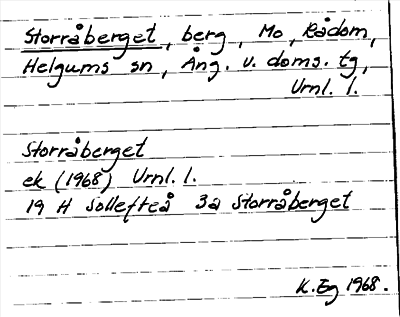 Storråberget, berg, Mo, Rådom,
Helgums sn, Ång. v. doms. tg,
Urnl. 1.
Storråberget
ek (1968) Urnl. 1.
19 H Sollefteå 3a Storråberget
K. Eg 1968.